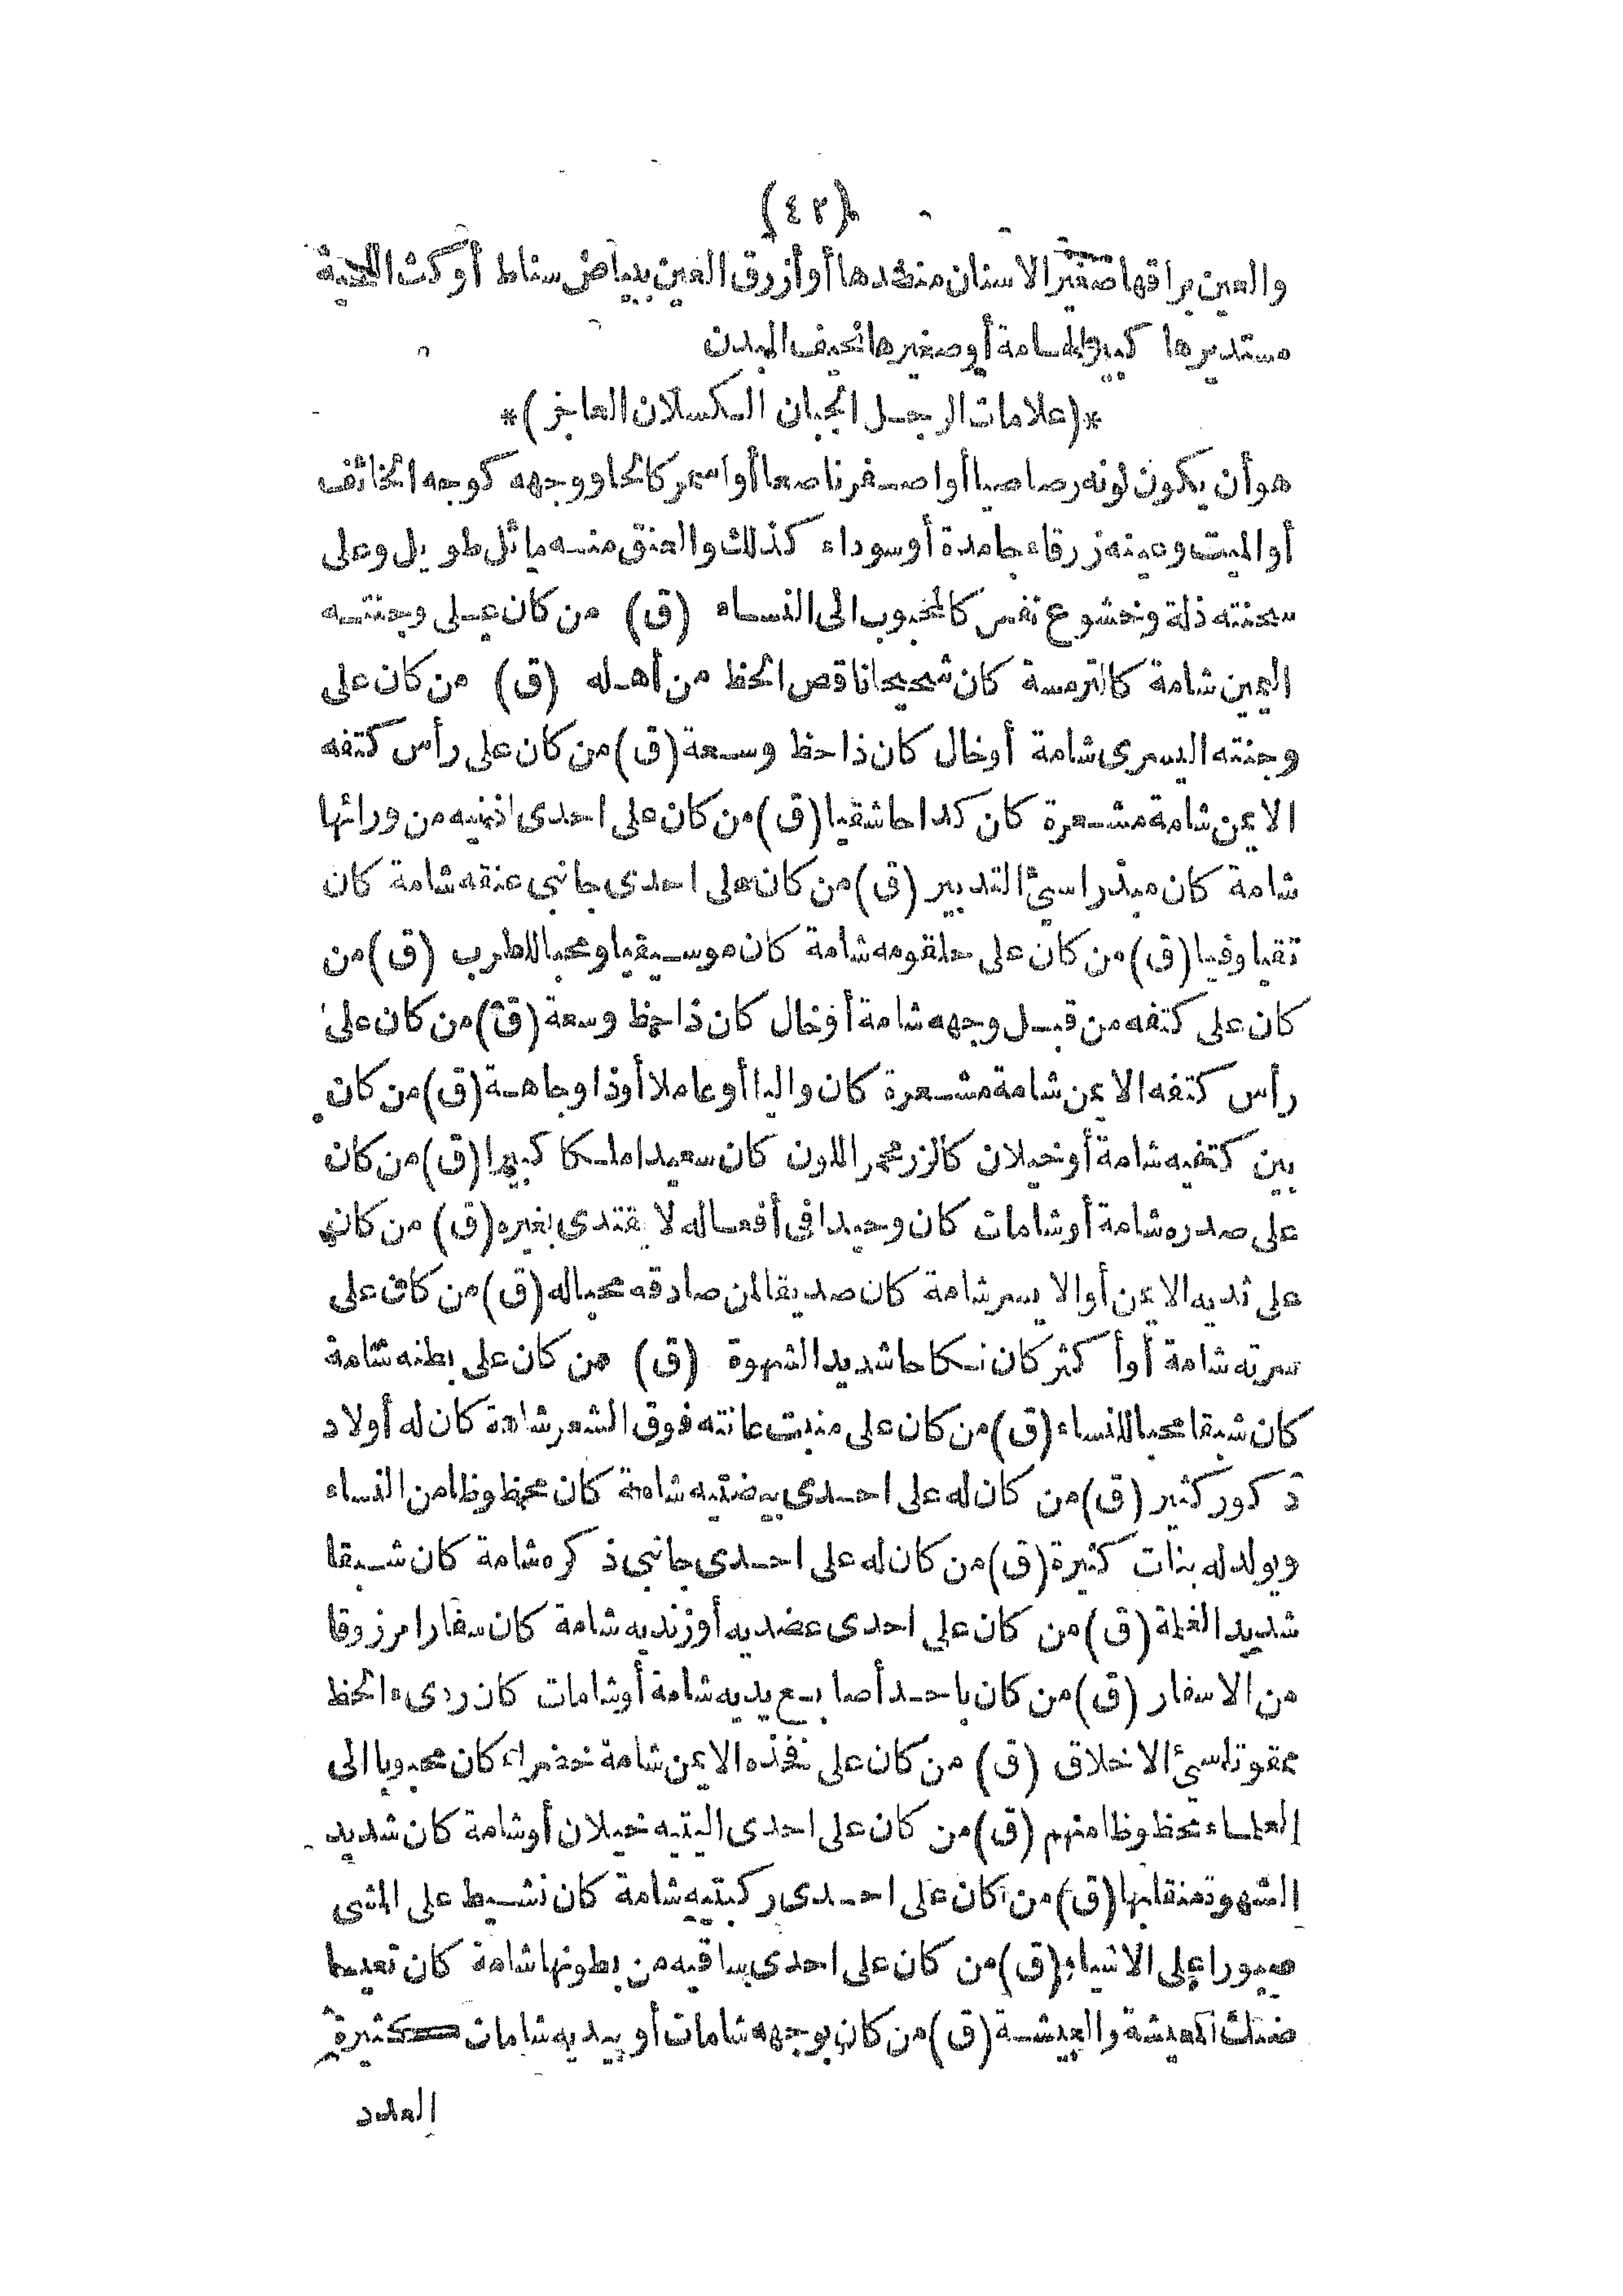 (٤٢)
والعين براقها صغير الاسنان منضدها أو أزرق العين ببياض سناط أو كث اللحية
مستديرها كبير الهامة أو صغيرها نحيف البدن
*(علامات الرجل الجبان الكسلان العاجز)*
هو أن يكون لونه رصاصيا أو اصفر ناصعا أو اسمر كالحا ووجهه كوجه الخائف
أو الميت وعينه زرقاء جامدة أو سوداء كذلك والعنق منه مائل طويل وعلى
سحنته ذلة وخشوع نفس كالمحبوب الى النساء (ق) من كان على وجنته
اليمين شامة كالترمسة كان شحيحا ناقص الحظ من أهله (ق) من كان على
وجنته اليسرى شامة أو خال كان ذا حظ وسعة (ق) من كان على رأس كتفه
الايمن شامة مشعرة كان كداحا شقيا (ق) من كان على احدى اذنيه من ورائها
شامة كان مبذرا سيئ التدبير (ق) من كان على احدى جانبي عنقه شامة كان
تقيا وفيا (ق) من كان على حلقومه شامة كان موسيقيا ومحبا للطرب (ق) من
كان على كتفه من قبل وجهه شامة أو خال كان ذا حظ وسعة (ق) من كان على
رأس كتفه الايمن شامة مشعرة كان واليا أو عاملا أو ذا وجاهة (ق) من كان
بين كتفيه شامة أو خيلان كالزر محمر اللون كان سعيدا ملكا كبيرا (ق) من كان
على صدره شامة أو شامات كان وحيدا فى أفعاله لا يقتدى بغيره (ق) من كان
على ثديه الايمن أو الايسر شامة كان صديقا لمن صادقه محبا له (ق) من كان على
سرته شامة أو أكثر كان نكاحا شديد الشهوة (ق) من كان على بطنه شامة
كان شبقا محبا للنساء (ق) من كان على منبت عانته فوق الشعر شامة كان له أولاد
ذكور كثير (ق) من كان له على احدى بيضتيه شامة كان محظوظا من النساء
ويولد له بنات كثيرة (ق) من كان له على احدى جانبي ذكره شامة كان شبقا
شديد الغلمة (ق) من كان على احدى عضديه أو زنديه شامة كان سفارا مرزوقا
من الاسفار (ق) من كان باحد أصابع يديه شامة أو شامات كان ردىء الحظ
ممقوتا سيئ الاخلاق (ق) من كان على فخذه الايمن شامة خضراء كان محبوبا الى
العلماء محظوظا منهم (ق) من كان على احدى اليتيه خيلان أو شامة كان شديد
الشهوة منقابها (ق) من كان على احدى ركبتيه شامة كان نشيط على المشى
صبورا على الاشياء (ق) من كان على احدى ساقيه من بطونها شامة كان تعيسا
ضنك المعيشة والعيشة (ق) من كان بوجهه شامات أو بيديه شامات كثيرة
العدد